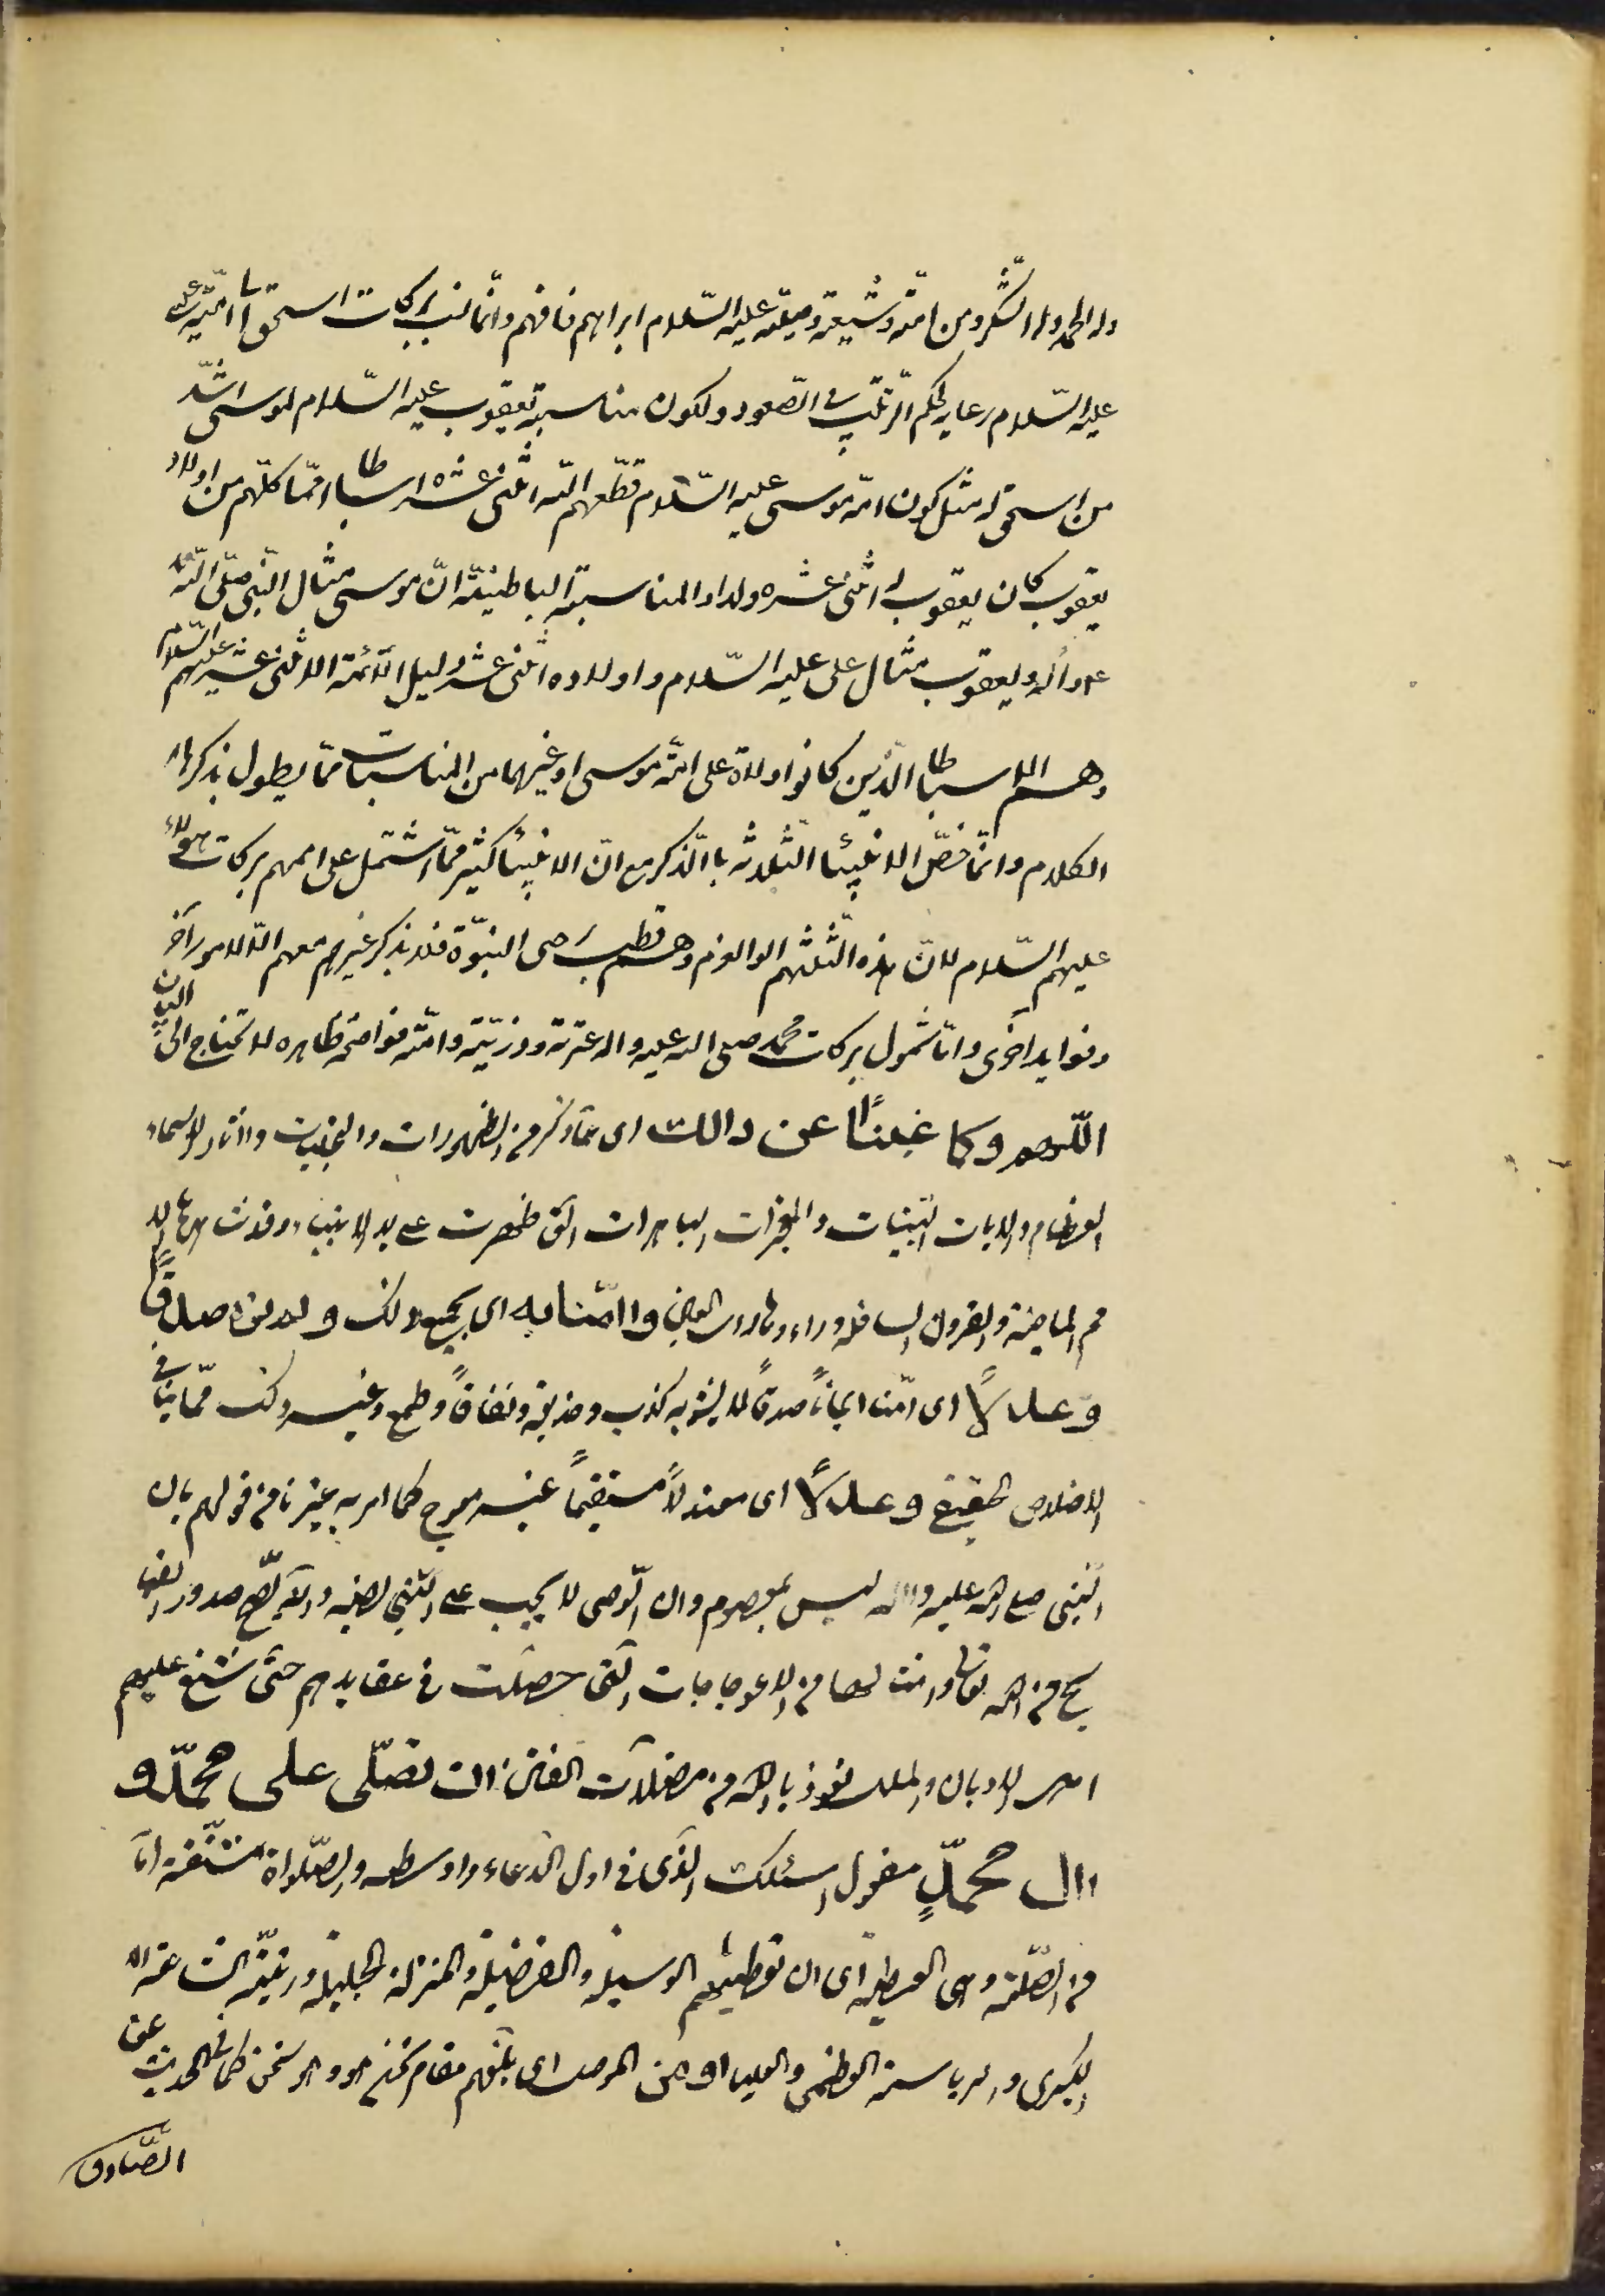 وله الحمد وله الشكر ومن امته وشيعته وملته عليه السّلام ابراهيم فافهم وانّما نسب بركات اسحق الى امّة عيسى
عليه السّلام رعاية لحكم الترتيب فى الصّعود ولكون مناسبة يعقوب عليه السّلام لموسى اشدّ
من اسحق له مثل كون امّة موسى عليه السّلام قطّعهم اللّه اثنى عشره اسباطا امما كلّهم من اولاد
يعقوب كان يعقوب له اثنى عشره ولدا والمناسبة الباطنيّة انّ موسى مثال النّبى صلّى اللّه
عليه وآله ويعقوب مثال على عليه السّلام واولاده اثنى عشر دليل الائمّة الاثنى عشر عليهم السّلام
وهم الاسباط الّذين كانوا ولاة على امّة موسى او غيرها من المناسبات ممّا يطول بذكرها
الكلام وانّما خصّ الانبيآء الثّلاثه باالذّكر مع انّ الانبيآء كثير ممّا اشتمل على اممهم بركات هؤلاء
عليهم السّلام لانّ هذه الثّلثه هم الوالعزم وهم قطب رحى النبوّة فلا يذكر غيرهم معهم الّا لامور آخر
وفوايد آخرى وامّا شمول بركات محمد صلى الله عليه واله عترته وذرّيّته وامّته فواضحة ظاهره لا تحتاج الى البيان
اللّهم وكما غبنا عن ذالك اى عمّا ذكر من الظهورات والتجليات والآثار والاسماء
العظام والايات البيّنات والمعجزات الباهرات التى ظهرت على يد الانبياء وقد شاهدها الا
مم الماضية والقرون السالفة وامنّا به اى بجميع ذلك ولم نره صدقًا
وعدلًا اى امنّا ايمانًا صدقًا لا يشوبه كذب ونفاقًا وطمع وغير ذلك ممّا ينافى
الاخلاص الحقيقى وعدلًا اى معتدلًا مستقيمًا غير معوج كما امر به غيرنا من قولهم بان
النّبى صلى الله عليه واله ليس بمعصوم وان الوصى لا يجب على النّبى نصبه وانّه يصحّ صدور القبا
يح من الله تعالى وامثالها من الاعوجاجات التى حصلت فى عقايدهم حتّى شنع عليهم
اهل الاديان والملل نعوذ بالله من مضلّات الفتن ان تصلّى على محمّد و
ال محمّدٍ مفعول اسئلك الذى فى اول الدعاء واوسطه والصّلواة مشتقّة امّا
من الصّلة وهى العطية اى ان تعطيهم الوسيلة والفضيلة والمنزلة الجليلة ورتبة الشفاعة
الكبرى والرياسة العظمى والعليا او من الوصل اى بلّغهم مقام نحن هو وهو نحن كما فى الحديث عن
الصّادق